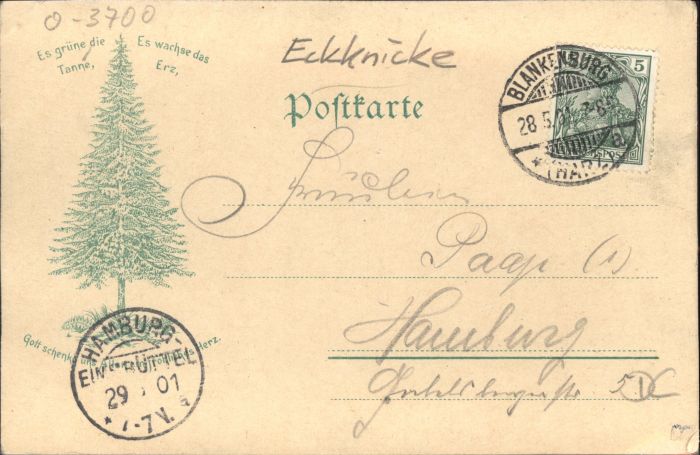 O-3700
Es grüne die
Tanne,
Es wachse das
Erz,
Eckknicke
Postkarte
5
BLANKENBURG
28.5.01
(HARZ)
a
Fräulein
Paap (1)
Hamburg
5
Gott schenke uns
Herz.
HAMBURG-
EIMSBÜTTEL
29 5 01
7-7 V.